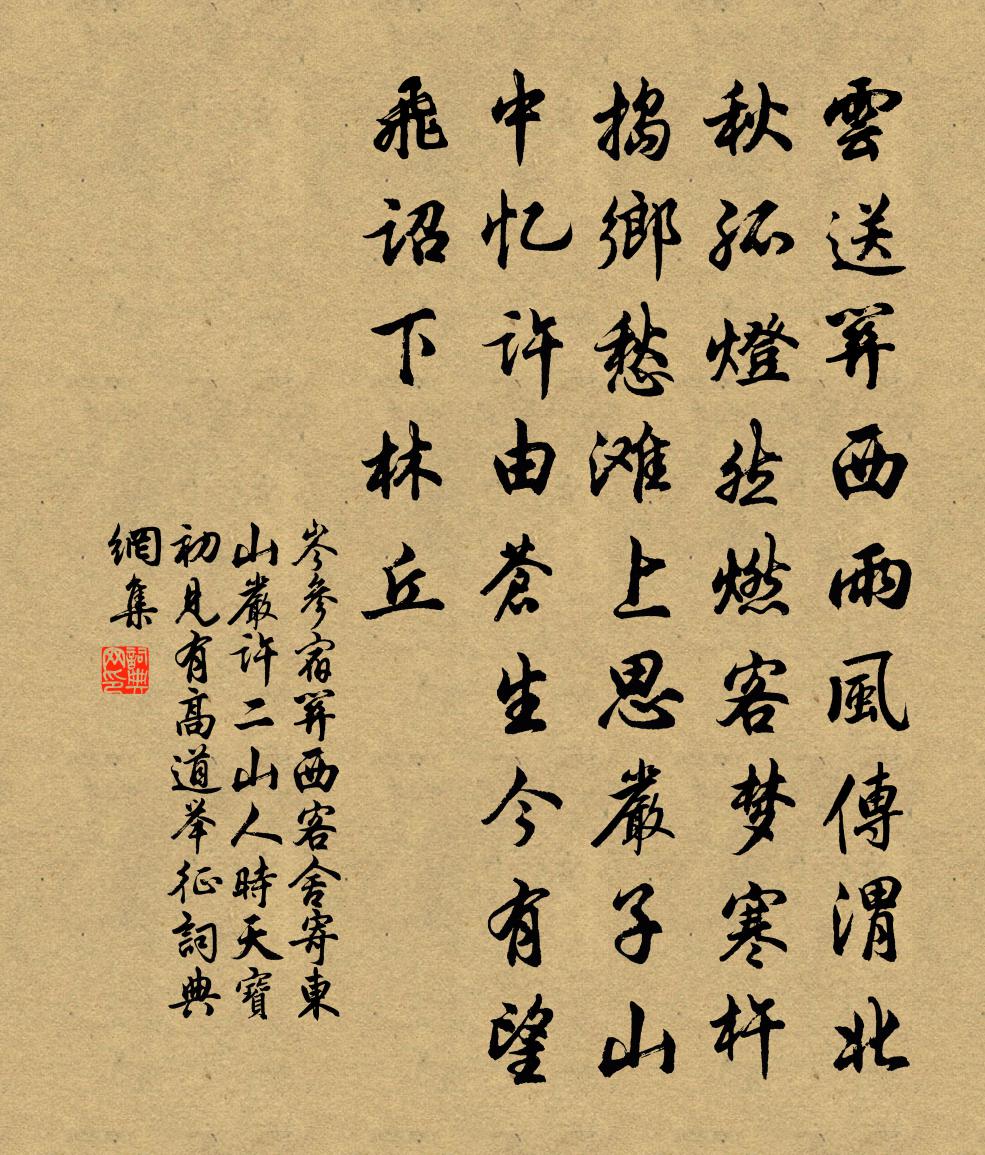 雲送關西雨風傳渭北
秋孤燈然燃客梦寒杵
搗鄉愁滩上思嚴子山
中忆許由蒼生今有望
飛詔下林丘
岑參宿關西客舍寄東
山嚴許二山人時天寶
初見有高道举征詞典
網集
詞典网印